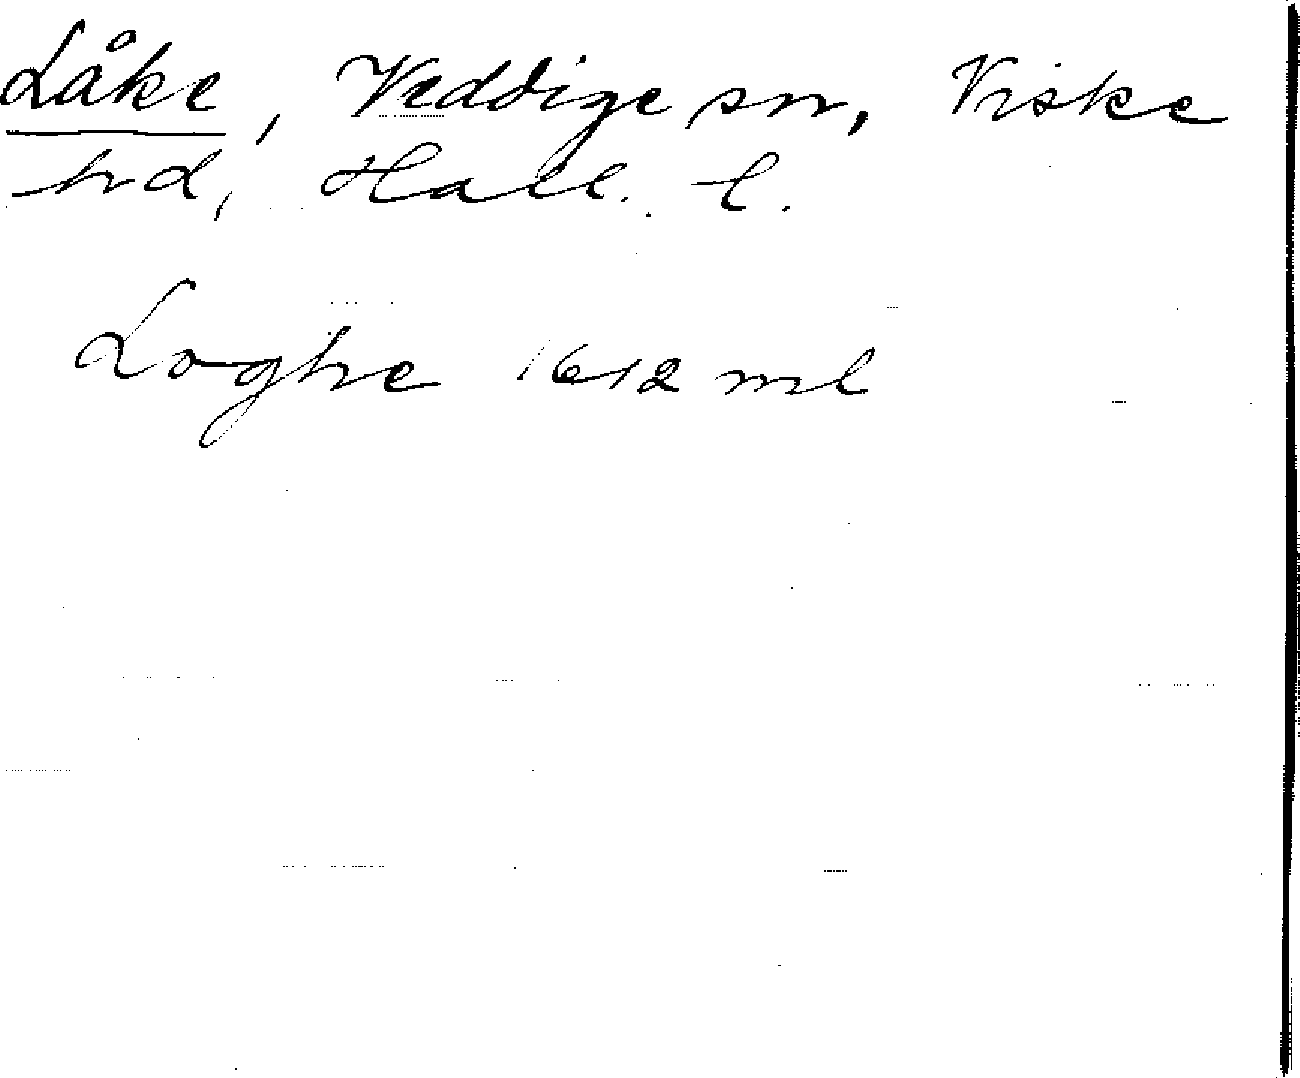 Låke, Veddige sn, Viske
hd, Hall. l.
Loghe 1612 ml